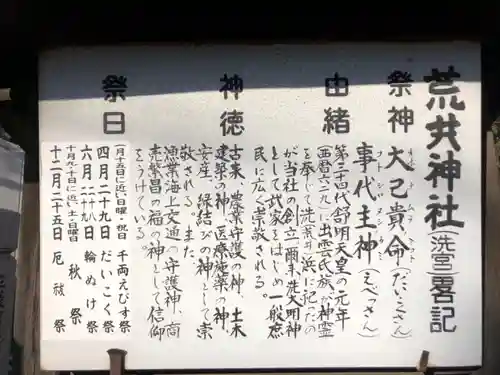 荒井神社(洗宮)畧記
祭神 大己貴命(だいこくさん)
オホナムチノミコト
事代主神(えべっさん)
コトシロヌシノカミ
由緒 第三十四代舒明天皇の元年
(西暦六二九)出雲氏族が神霊
を奉じて洗荒井浜に祀ったの
が当社の創立爾来洗大明神
として武家をはじめ一般庶
民に広く崇敬される。
神徳 古来、農業守護の神、土木
建築の神、医療施薬の神、
安産、縁結びの神として崇
敬される。また、
漁業海上交通の守護神、商
売繁昌の福の神として信仰
をうけている。
祭日 一月十五日に近い日曜・祝日 千両えびす祭
四月二十九日 だいこく祭
六月二十九日 輪ぬけ祭
十月九、十日に近い土・日曜日 秋祭
十二月二十五日 厄祓祭